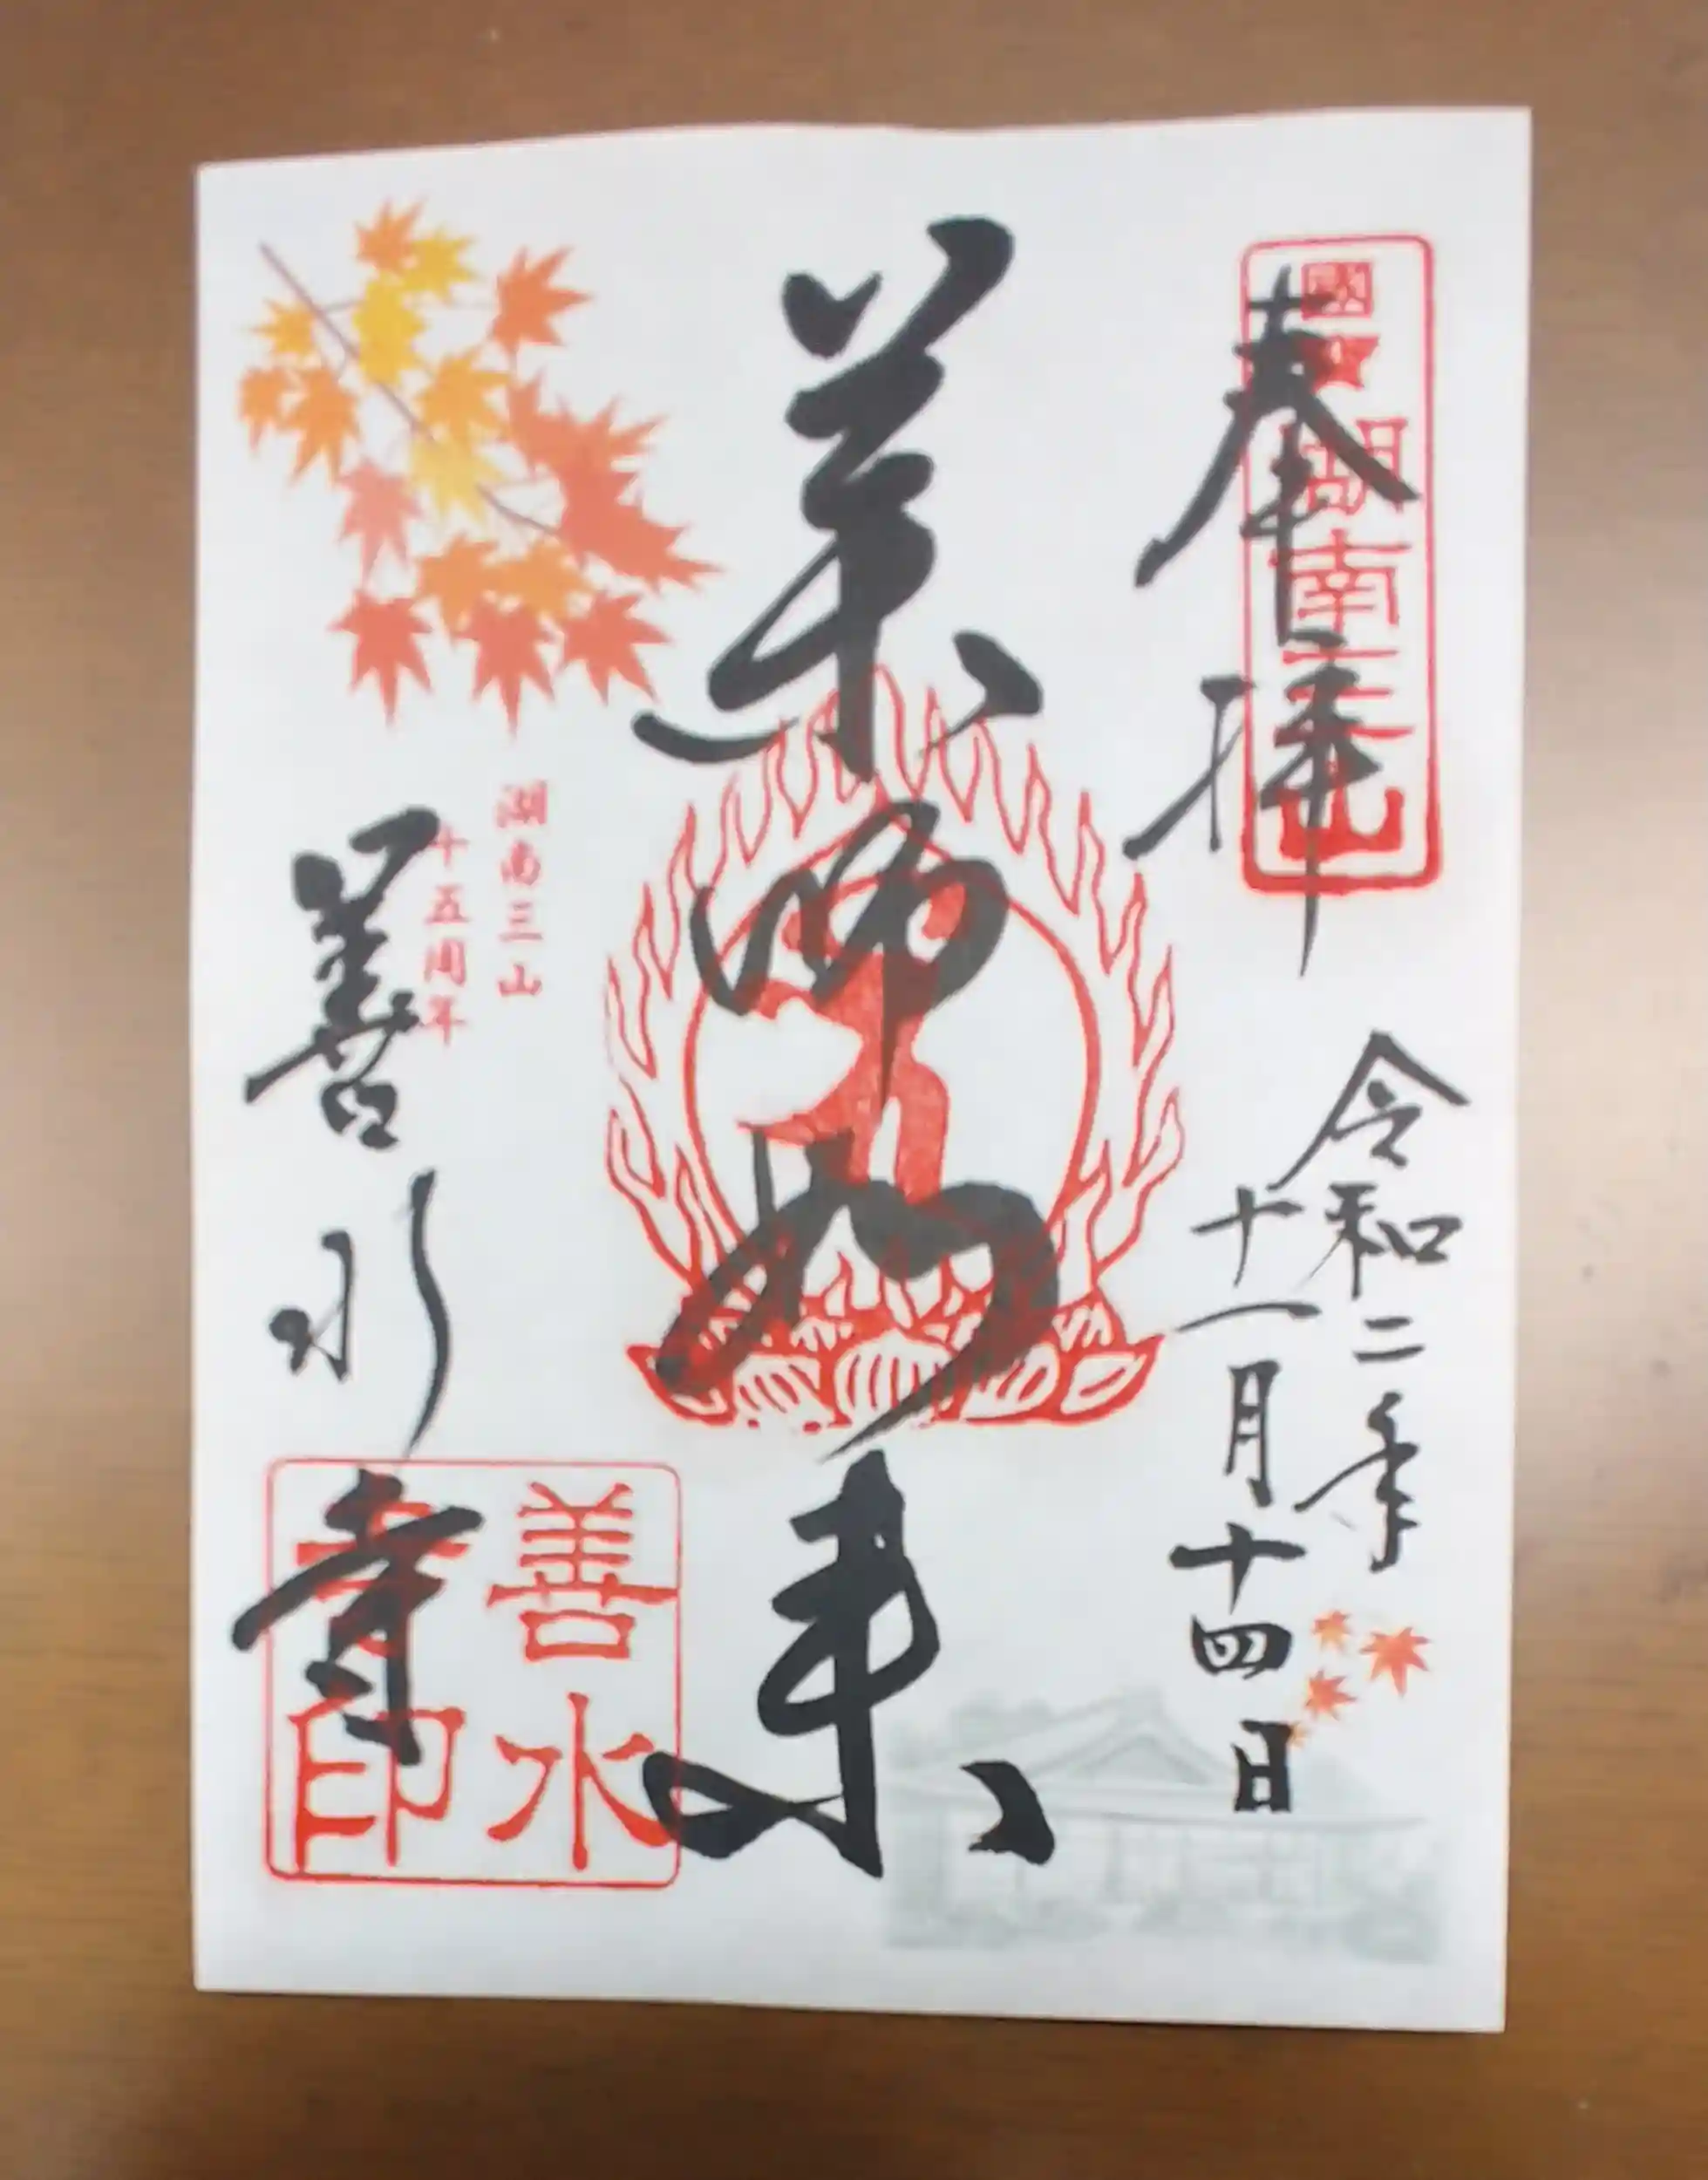 奉拝
國宝 湖南三山
令和二年
十一月十四日
薬師如来
湖南三山
十五周年
善水寺
善水寺印